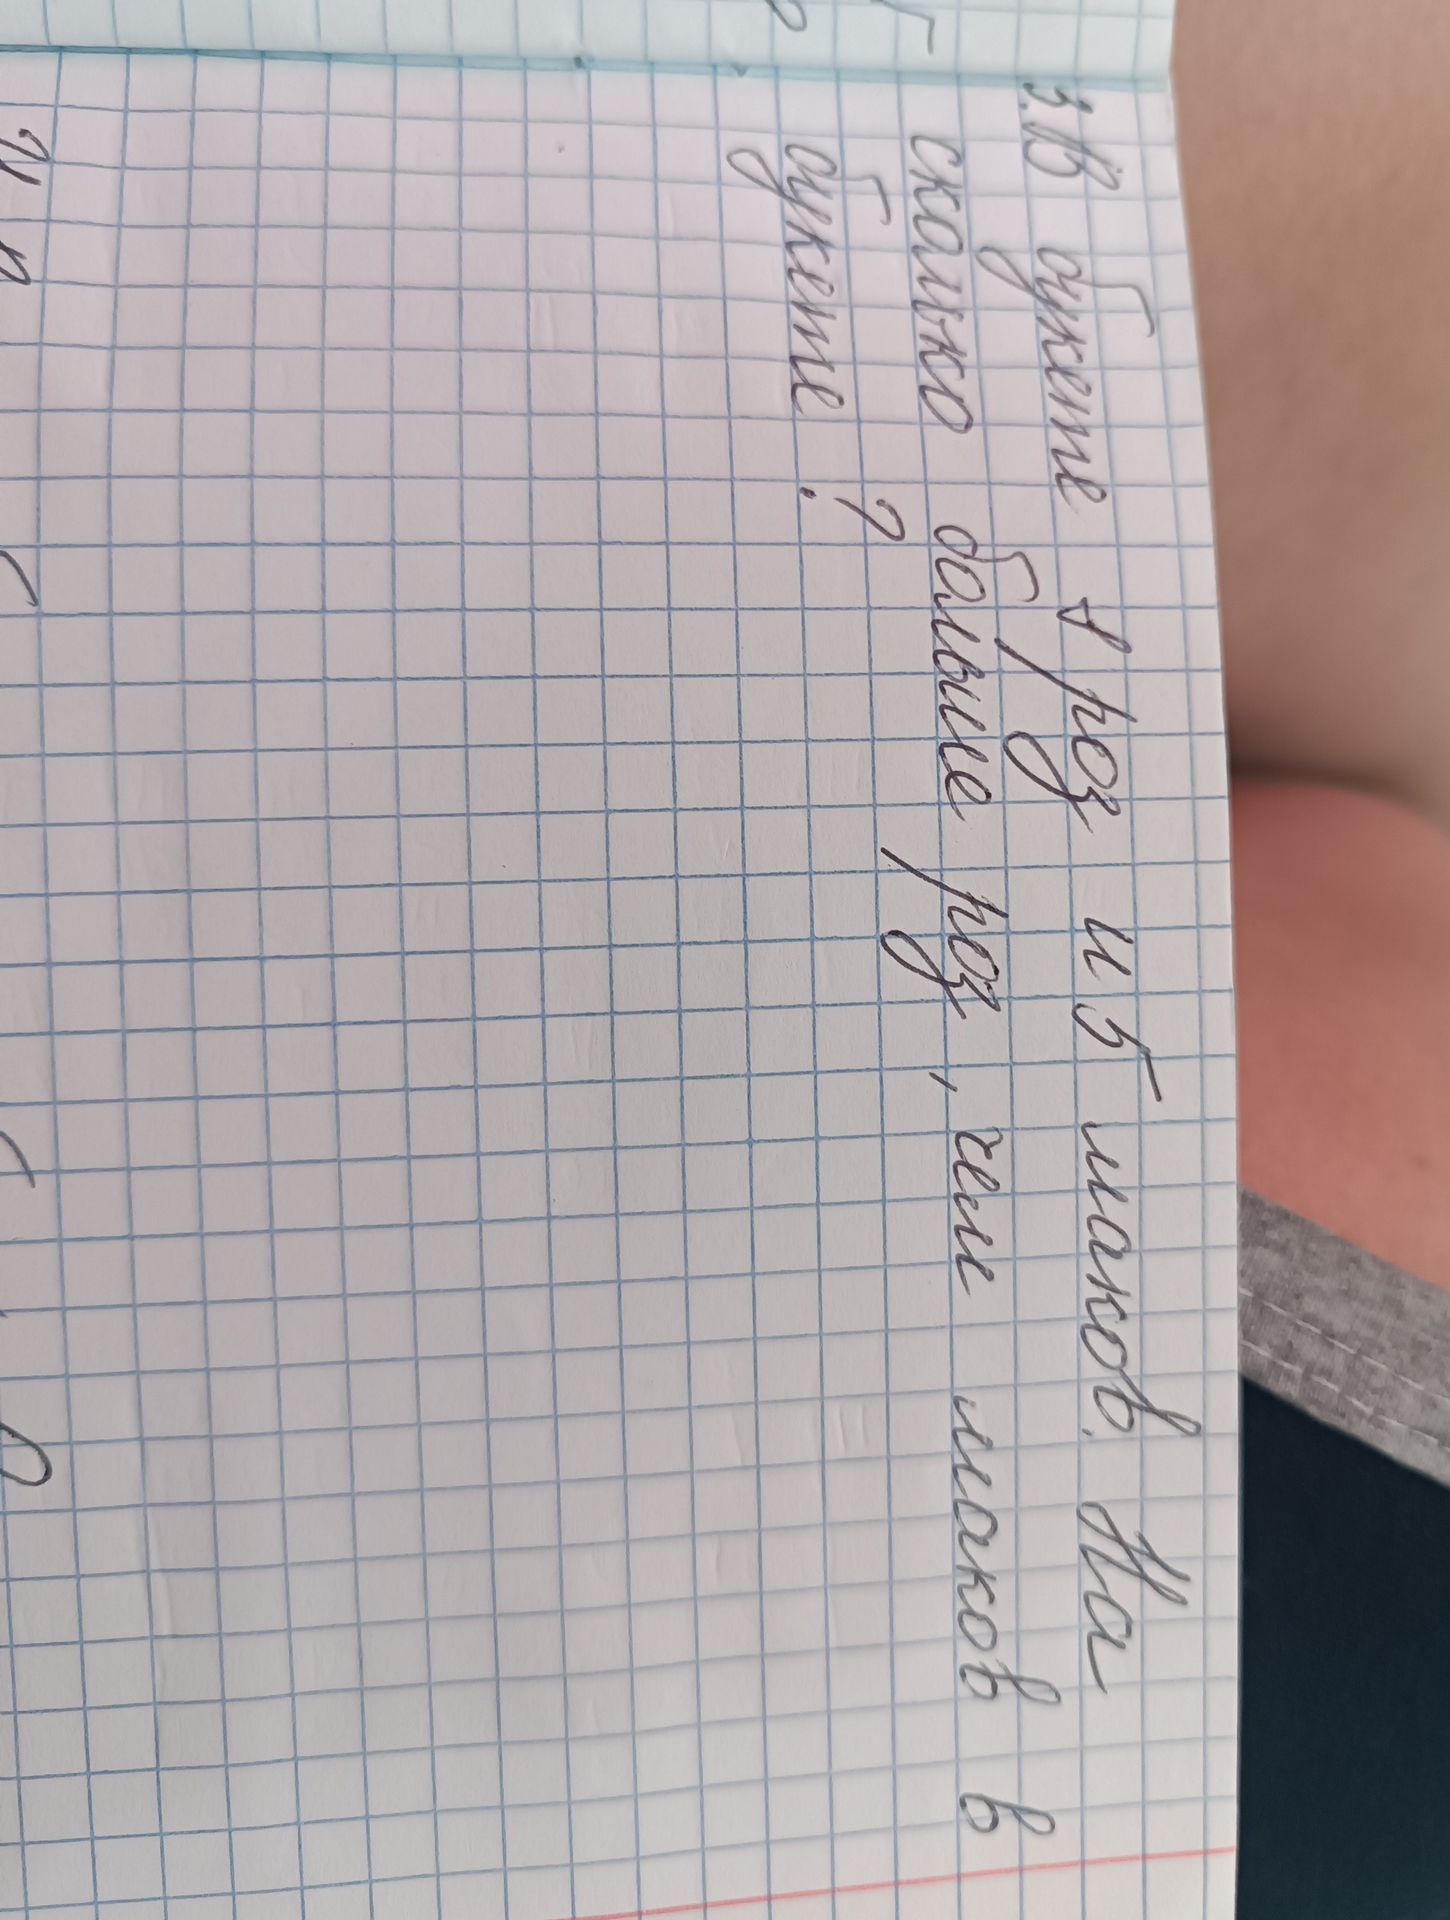 3. В букете 8 роз и 5 маков. На
сколько больше роз, чем маков в
букете?